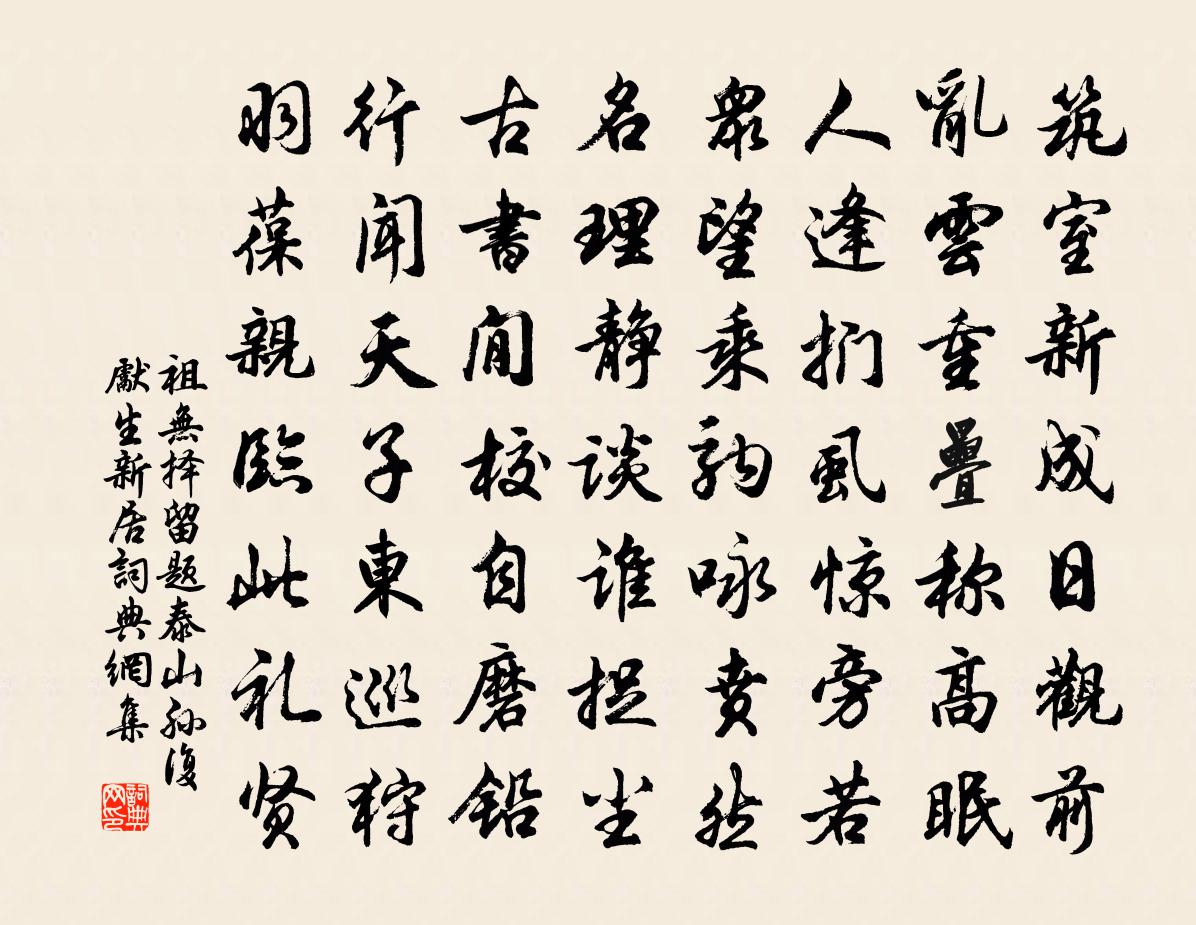 筑室新成日觀前
亂雲重疊称高眠
人逢捫虱惊旁若
眾望乘駒咏賁然
名理静谈谁捉尘
古書閒校自磨铅
行闻天子東巡狩
羽葆親臨此礼贤
祖無择留题泰山孙復
獻生新居詞典網集
詞典
网印